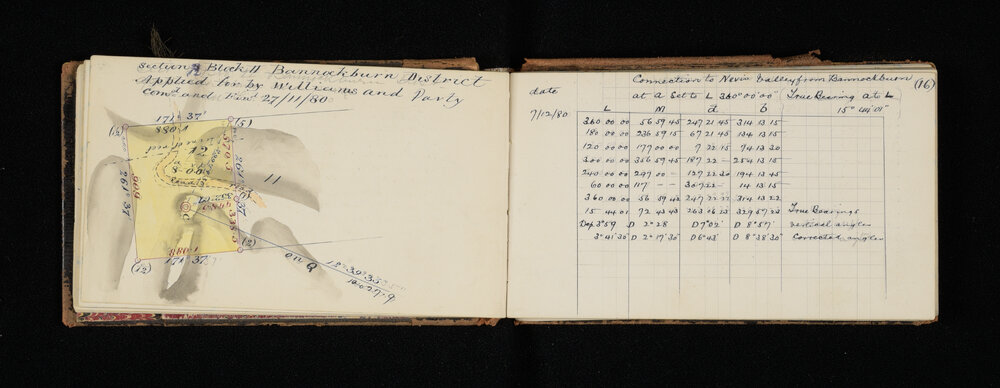 Section Block II Bannockburn District
Applied for by Williams and Party
Com'd and Fin'd 27/11/80
171° 37'
880.1
(5)
570.5
261° 37'
11
800
Road
335.5
(2)
880.1
171° 37'
(12)
on Q
12° 39' 35"
(16)
Connection to Nevis Valley from Bannockburn
date at A Set to L 360° 00' 00" True Bearing A to L
15° 44' 01"
7/12/80
L M d b
360 00 00 56 59 45 247 21 45 314 13 15
180 00 00 236 59 15 67 21 45 134 13 15
120 00 00 177 00 00 7 22 15 74 13 30
300 00 00 356 59 45 187 22 – 254 13 15
240 00 00 297 00 – 127 22 30 194 13 45
60 00 00 117 – – 307 22 – 14 13 15
360 00 00 56 59 42 247 22 22 314 13 22
15 44 01 72 43 43 263 06 23 329 57 23 True Bearings
Dep 3° 59 D 2° 28 D 7° 02' D 8° 57' vertical angles
3° 41' 30" D 2° 17' 30" D 6° 43' D 8° 38' 30 Corrected angles